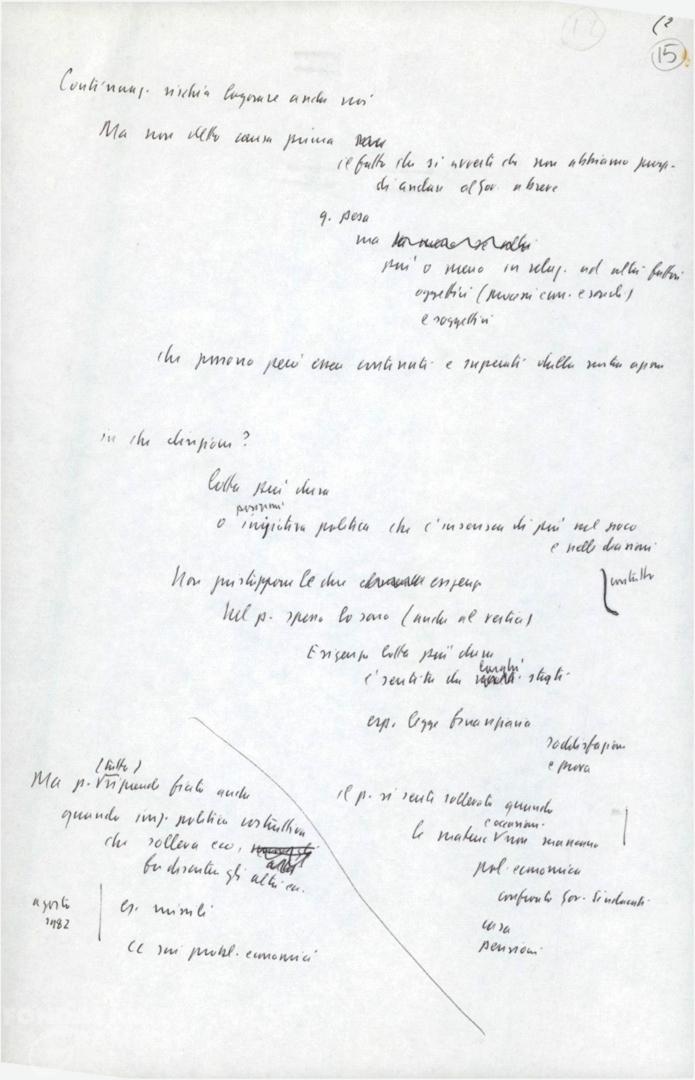 12
15
Continuaz. rischia logorare anche noi
Ma non detto causa prima
il fatto che si avverte che non abbiamo prosp.
di andare al Gov. a breve
q. pesa
ma
più o meno in relaz. ad altri fattori
oggettivi (processi econ. e sociali)
e soggettivi
che possono però essere contenuti e superati dalla nostra azione
in che direzione?
lotta più dura
o iniziativa politica che s'inserisca di più nel gioco
e nelle decisioni
Non giustapporre le due esigenze
contatto
Nel p. spesso lo sono (anche al vertice)
Esigenza lotta più dura
è sentita da larghi strati
esp. legge finanziaria
soddisfazione
e prova
(tutto)
Ma p. riprende fiato anche
quando iniz. politica costruttiva
che solleva eco,
fa discutere gli altri ecc.
agosto
1982
es. missili
CC sui probl. economici
il p. si sente sollevato quando
e occasioni
le materie non mancano
pol. economica
confronto Gov. Sindacati
casa
pensioni